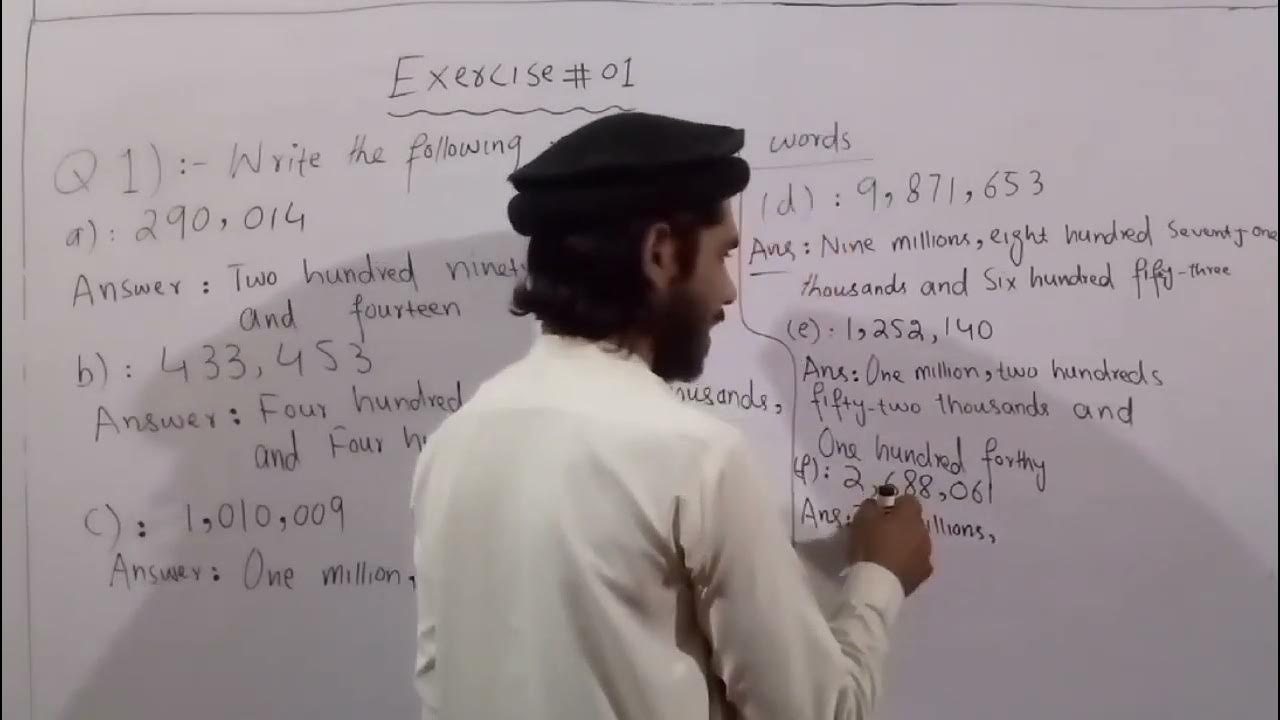 Exercise # 01
Q 1) :- Write the following words
a) : 290,014
Answer : Two hundred ninety
and fourteen
b) : 433,453
Answer : Four hundred
and Four
c) : 1,010,009
Answer : One million,
(d) : 9,871,653
Ans : Nine millions, eight hundred seventy-one
thousands and Six hundred fifty-three
(e) : 1,252,140
Ans : One million, two hundreds
fifty-two thousands and
One hundred forthy
(f) : 2,688,061
Ans :